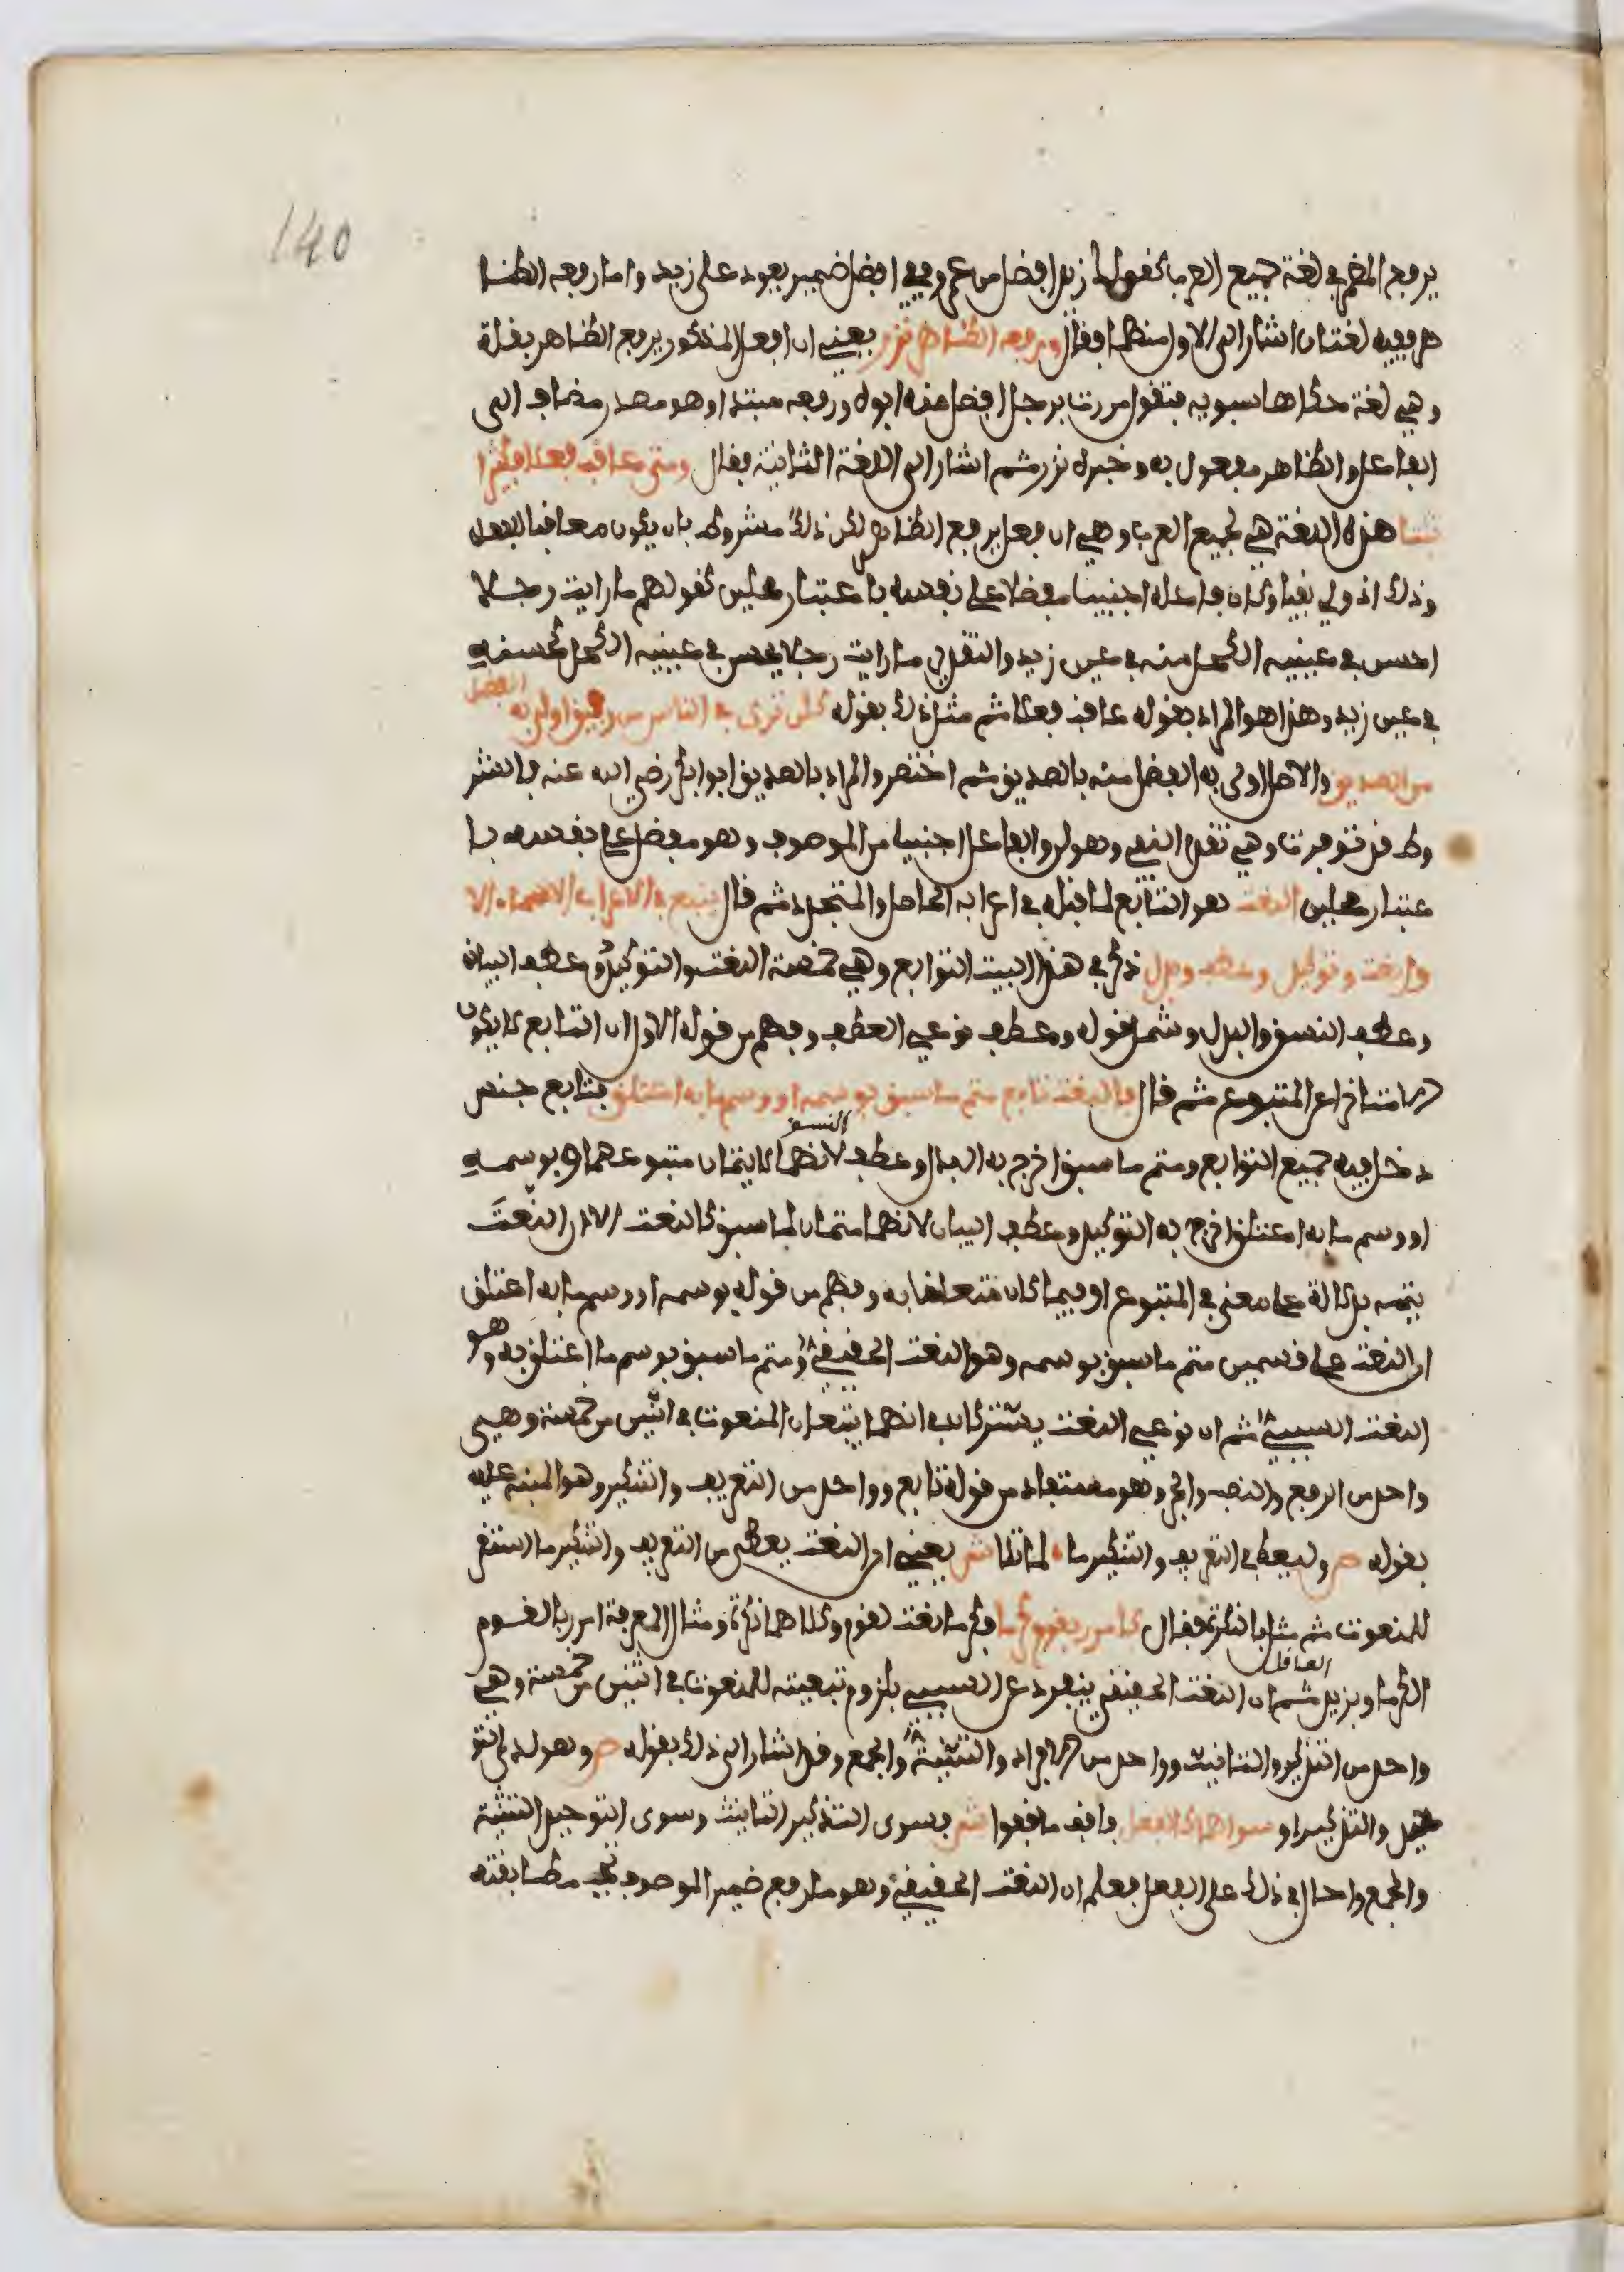 140
يرفع المضمر في لغة جميع العرب كقولك زيد افضل من عمرو ففي افضل ضمير يعود على زيد واما رفعه الظا
هر ففيه لغتان اشار الى الاولى منهما فقال ورفعه الظاهر نزر يعني ان افعل المذكور يرفع الظاهر بقلة
وهي لغة حكاها سبويه فتقول مررت برجل افضل منه ابوه ورفعه مبتدا وهو مصدر مضاف الى
الفاعل والظاهر مفعول به وخبره نزر ثم اشار الى اللغة الثانية فقال ومتى عاقب فعلا فكثيرا
ثبتا هذه اللغة هي لجميع العرب وهي ان افعل يرفع الظاهر لكن ذلك مشروط بان يكون معاقبا للفعل
وذلك اذ ولي نفيا وكان فاعله اجنبيا مفضلا على نفسه باعتبار محلين كقولهم ما رايت رجلا
احسن في عينيه الكحل منه في عين زيد والتقدير ما رايت رجلا يحسن في عينيه الكحل كحسنه
في عين زيد وهذا هو المراد بقوله عاقب فعلا ثم مثل ذلك بقوله كلن ترى في الناس من رفيق اولى به الفضل
من الصديق والاصل اولى به الفضل منه بالصديق ثم اختصر والمراد بالصديق ابو ابكر رضي الله عنه فالشر
وط قد توفرت وهي تقدم النفي وهو لن والفاعل اجنبيا من الموصوف وهو مفضل على نفسه با
عتبار محلين النعت هو التابع لما قبله في اعرابه الحاصل والمتجدد ثم قال يتبع في الاعراب الاسماء الا
ول نعت وتوكيد وعطف وبدل ذكر في هذا البيت التوابع وهي خمسة النعت والتوكيد وعطف البيان
وعطف النسق والبدل وشمل قوله وعطف نوعي العطف وفهم من قوله الاول ان التابع لا يكون
الا متاخرا عن المتبوع ثم قال فالنعت تابع متم ما سبق بوسمه او وسم ما به اعتلق فتابع جنس
دخل فيه جميع التوابع ومتم ما سبق اخرج به البدل وعطف النسق لانهما لا يتمان متبوعهما وبوسمه
او وسم ما به اعتلق اخرج به التوكيد وعطف البيان لانهما متمان لما سبق كالنعت الا ان النعت
يتمه بدلالة على معنى في المتبوع او فيما كان متعلقا به وفهم من قوله بوسمه او وسم ما به اعتلق
ان النعت على قسمين متم ما سبق بوسمه وهو النعت الحقيقي ومتم ما سبق بوسم ما اعتلق به وهو
النعت السببي ثم ان نوعي النعت يشتركان في انهما يتبعان المنعوت في اثنين من خمسة وهي
واحد من الرفع والنصب والجر وهو مستفاد من قوله تابع وواحد من التعريف والتنكير وهو المنبه عليه
بقوله ص وليعط في التعريف والتنكير ما لما تلا ش يعني ان النعت يعطى من التعريف والتنكير ما استقر
للمنعوت ثم مثل بالنكرة فقال كامرر بقوم كرما فكرما نعت لقوم وكلاهما نكرة ومثال المعرفة امرر بالقوم
الكرما وبزيد العاقل ثم ان النعت الحقيقي ينفرد عن السببي بلزوم تبعيته للمنعوت في اثنين من خمسة وهي
واحد من التذكير والتانيث وواحد من الافراد والتثنية والجمع وقد اشار الى ذلك بقوله ص وهو لدى التو
حيد والتذكير او سواهما كالفعل فاقف ما قفوا ش فسوى التذكير التانيث وسوى التوحيد التثنية
والجمع واحال في ذلك على الفعل فعلم ان النعت الحقيقي وهو ما رفع ضمير الموصوف تجب مطابقته